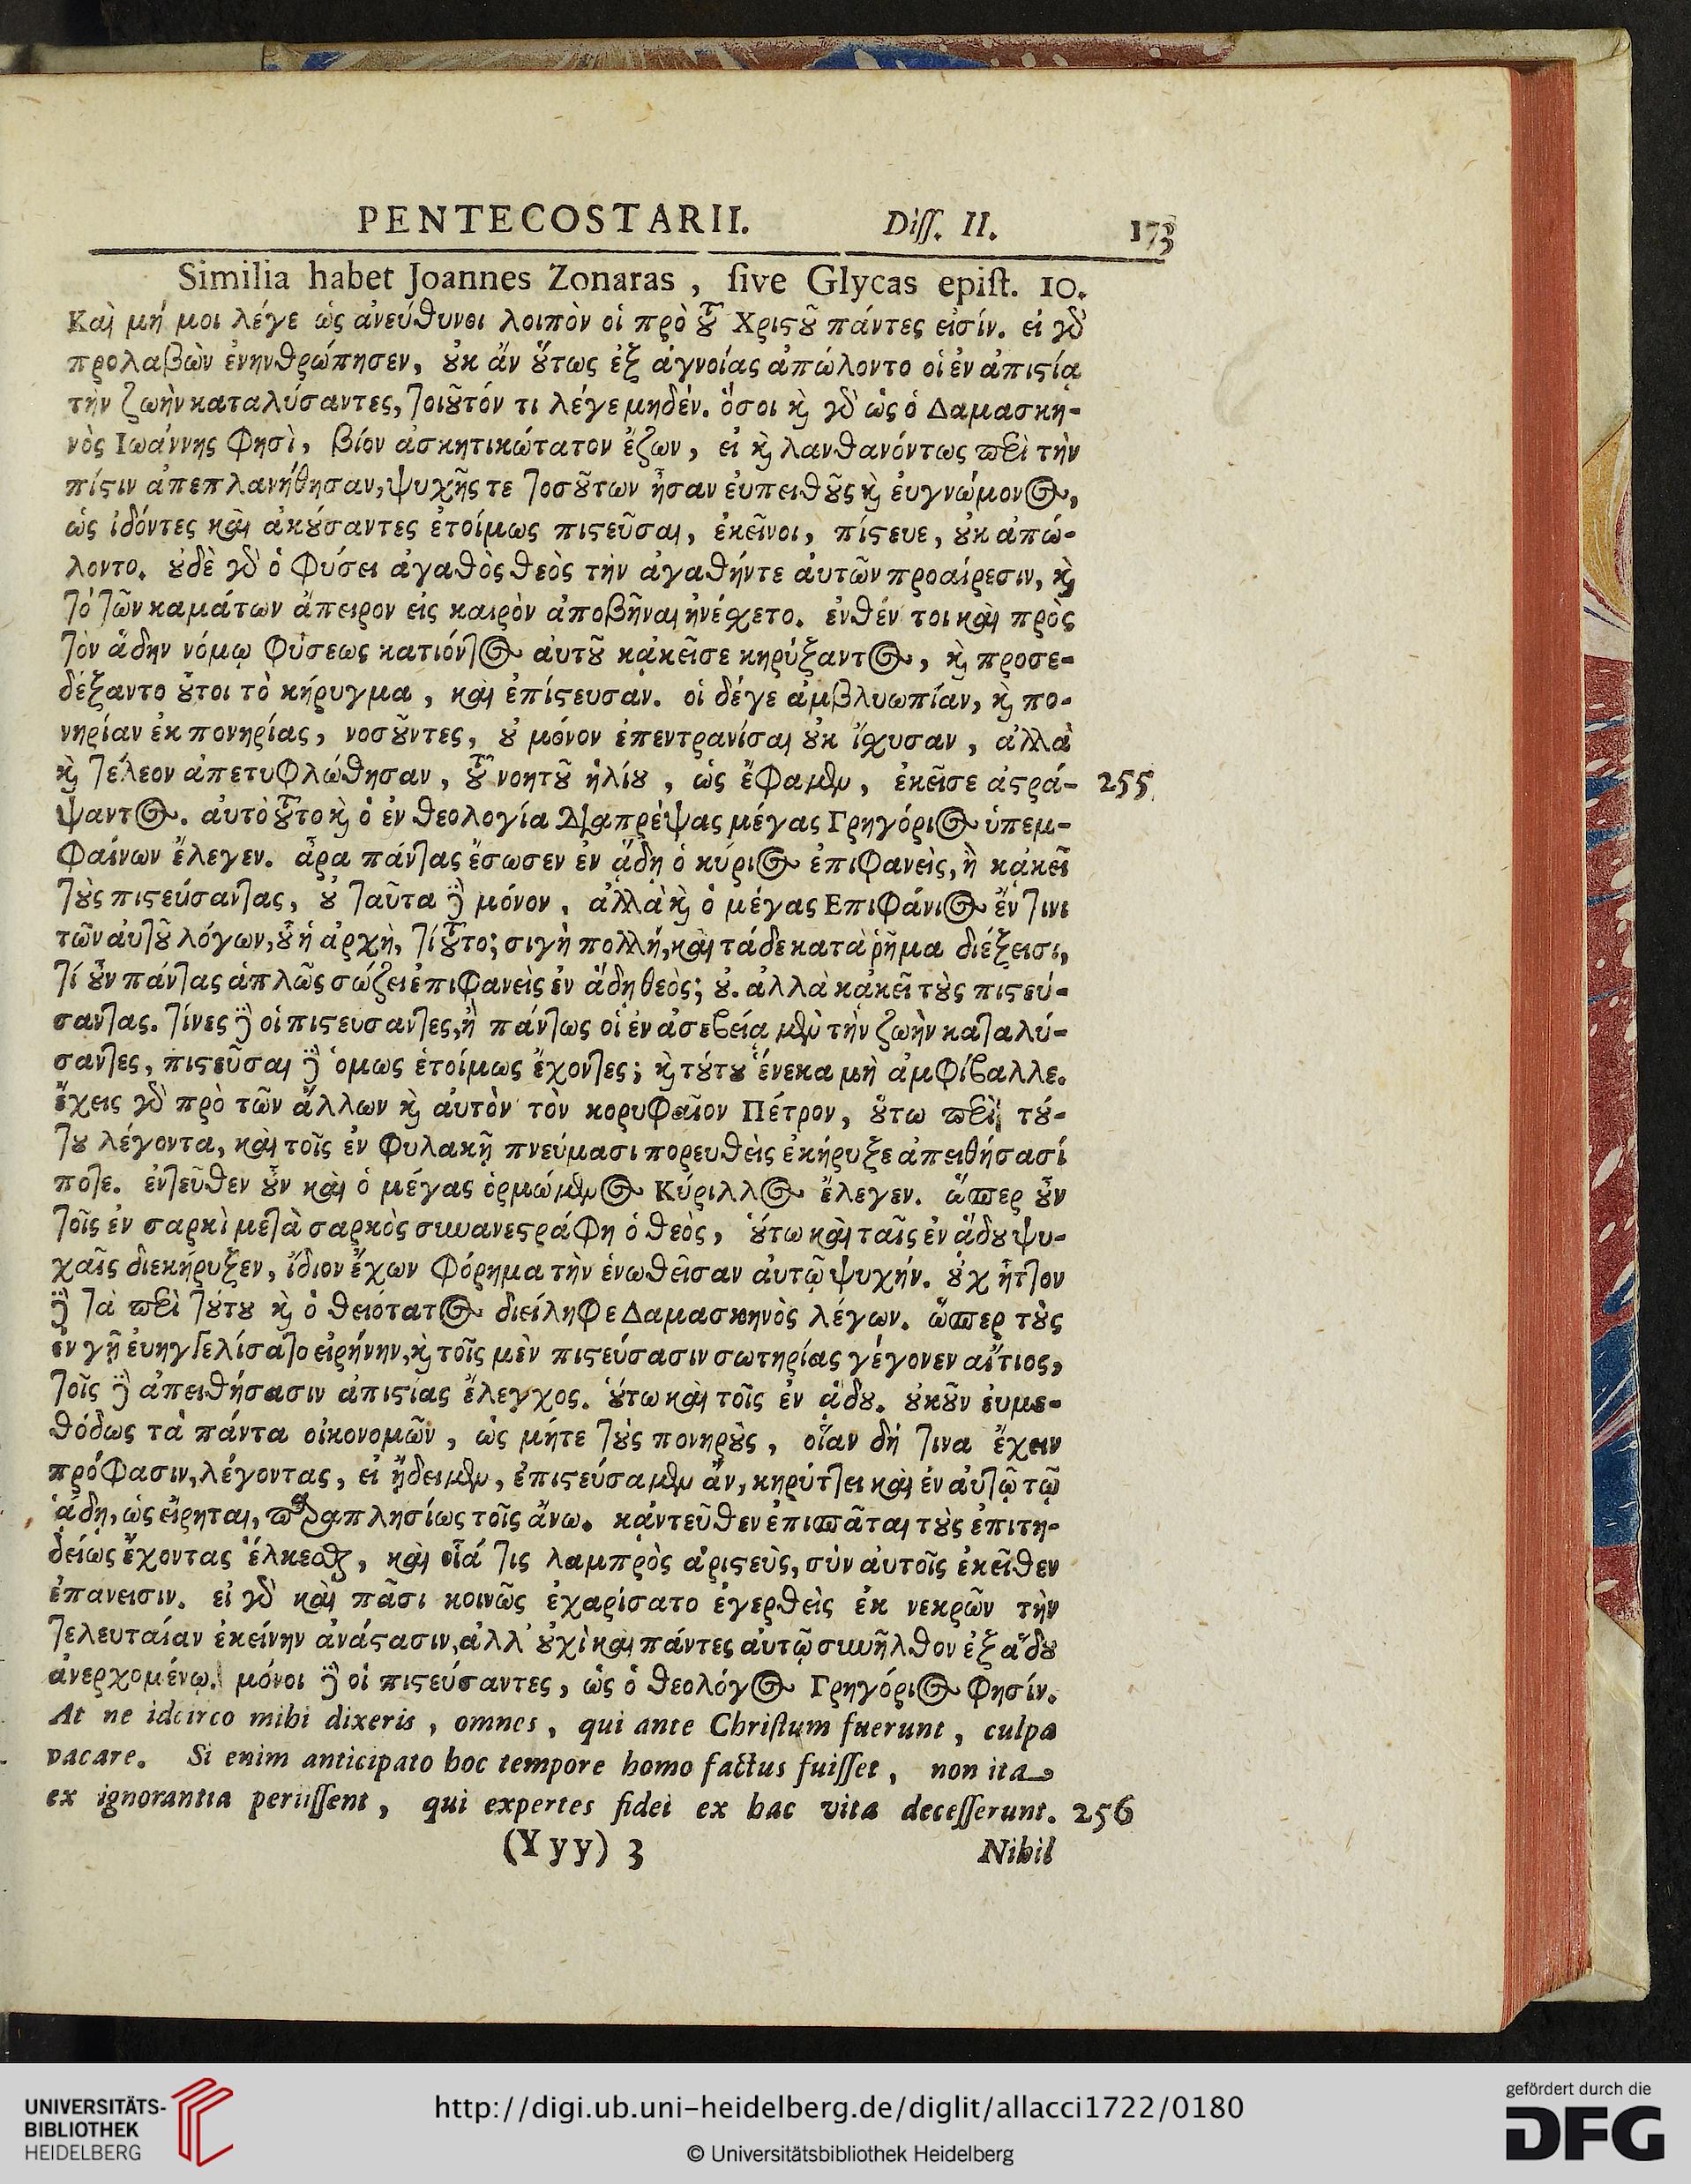 PENTECOSTARII. Diſſ. II. 173
Similia habet Joannes Zonaras, ſive Glycas epiſt. 10.
Καὶ μή μοι λέγε ὡς ἀνεύθυνοι λοιπὸν οἱ πρὸ τȣ̃ Χριϛȣ̃ πάντες εἰσίν. εἰ γδ̀
προλαβὼν ἐνηνθρώπησεν, ȣ̓κ ἄν ȣ̔́τως ἐξ ἀγνοίας ἀπώλοντο οἱ ἐν ἀπιϛίᾳ
τὴν ζωὴν καταλύσαντες, τοιȣ̃τόν τι λέγε μηδέν. ὅσοι ϗ̀ γδ̀ ὡς ὁ Δαμασκη-
νὸς Ιωάννης φησὶ, βίον ἀσκητικώτατον ἔζων, εἰ ϗ̀ λανθανόντως περὶ τὴν
πίϛιν ἀπεπλανήθησαν, ψυχῆς τε τοσȣ́των ἦσαν ἐυπειθȣ̃ς ϗ̀ ἐυγνώμονος,
ὡς ἰδόντες καὶ ἀκȣ́σαντες ἑτοίμως πιϛεῦσαι, ἐκεῖνοι, πίϛευε, ȣ̓κ ἀπώ-
λοντο. ȣ̓δὲ γδ̀ ὁ φύσει ἀγαθὸς θεὸς τὴν ἀγαθήντε ἀυτῶν προαίρεσιν, ϗ̀
τὸ τῶν καμάτων ἄπειρον εἰς καιρὸν ἀποβῆναι ἠνέχετο. ἐνθέν τοι καὶ πρὸς
τὸν ᾅδην νόμῳ φύσεως κατιόντος ἀυτȣ̃ κᾀκεῖσε κηρύξαντος, ϗ̀ προσε-
δέξαντο ȣ̔͂τοι τὸ κήρυγμα, καὶ ἐπίϛευσαν. οἱ δέγε ἀμβλυωπίαν, ϗ̀ πο-
νηρίαν ἐκ πονηρίας, νοσȣ̃ντες, ȣ̓ μόνον ἐπεντρανίσαι ȣ̓κ ἴχυσαν, ἀλλὰ
ϗ̀ τέλεον ἀπετυφλώθησαν, τȣ̃ νοητȣ̃ ἡλίȣ, ὡς ἔφαμεν, ἐκεῖσε ἀϛρά- 255
ψαντος. αυτὸ τȣ̃το ϗ̀ ὁ ἐν θεολογίᾳ διαπρέψας μέγας Γρηγόριος ὑπεμ-
φαίνων ἔλεγεν. ἆρα πάντας ἔσωσεν ἐν ᾅδῃ ὁ κύριος ἐπιφανεὶς, ἢ κᾀκεῖ
τȣ̀ς πιϛεύσαντας, ȣ̓ ταῦτα δὲ μόνον, ἀλλὰ ϗ̀ ὁ μέγας Επιφάνιος ἔν τινι
τῶν ἀυτȣ̃ λόγων, ȣ̔͂ ἡ ἀρχὴ, τί τȣ̃το; σιγὴ πολλή, καὶ τάδε κατὰ ῥῆμα διέξεισι,
τί ȣ̓͂ν πάντας ἁπλῶς σώζει ἐπιφανεὶς ἐν ᾅδῃ θεὸς; ȣ̓. ἀλλὰ κᾀκεῖ τȣ̀ς πιϛεύ-
σαντας. τίνες δὲ οἱ πιϛευσαντες, ἢ πάντως οἱ ἐν ἀσεβείᾳ μὲν τὴν ζωὴν καταλύ-
σαντες, πιϛεῦσαι δὲ ὅμως ἑτοίμως ἔχοντες; ϗ̀ τȣ́τȣ ἕνεκα μὴ ἀμφίβαλλε.
ἔχεις γδ̀ πρὸ τῶν ἄλλων ϗ̀ ἀυτὸν τὸν κορυφαῖον Πέτρον, ȣ̔́τω περὶ τȣ́-
τȣ λέγοντα, καὶ τοῖς ἐν φυλακῇ πνεύμασι πορευθεὶς ἐκήρυξε ἀπειθήσασί
ποτε. ἐντεῦθεν ȣ̓͂ν καὶ ὁ μέγας ὁρμώμενος Κύριλλος ἔλεγεν. ὥσπερ ȣ̓͂ν
τοῖς ἐν σαρκὶ μετὰ σαρκὸς συνανεϛράφη ὁ θεὸς, ȣ̔́τω καὶ ταῖς ἐν ᾅδȣ ψυ-
χαῖς διεκήρυξεν, ἴδιον ἔχων φόρημα τὴν ἑνωθεῖσαν αυτῷ ψυχήν. ȣ̓χ ἧττον
δὲ τὰ περὶ τȣ́τȣ ϗ̀ ὁ θειότατος διείληφε Δαμασκηνὸς λέγων. ὥσπερ τȣ̀ς
ἐν γῇ ἐυηγγελίσατο εἰρήνην, ϗ̀ τοῖς μὲν πιϛεύσασιν σωτηρίας γέγονεν αἴτιος,
τοῖς δὲ ἀπειθήσασιν ἀπιϛίας ἔλεγχος. ȣ̔́τω καὶ τοῖς ἐν ᾅδȣ. ȣ̓κȣ̃ν ἐυμε-
θόδως τὰ πάντα οἰκονομῶν, ὡς μήτε τȣ̀ς πονηρȣ̀ς, οἵαν δή τινα ἔχειν
πρόφασιν, λέγοντας, εἰ ᾔδειμεν, ἐπιϛεύσαμεν ἄν, κηρύττει καὶ ἐν ἀυτῷ τῷ
ᾅδῃ, ὡς εἴρηται, παραπλησίως τοῖς ἄνω. κᾀντεῦθεν ἐπισπᾶται τȣ̀ς ἐπιτη-
δείως ἔχοντας ἕλκεσθαι, καὶ οἷά τις λαμπρὸς ἀριϛεὺς, σύν ἀυτοῖς ἐκεῖθεν
ἐπανεισιν. εἰ γδ̀ καὶ πᾶσι κοινῶς ἐχαρίσατο ἐγερθεὶς ἐκ νεκρῶν τὴν
τελευταίαν ἐκείνην ἀνάϛασιν, ἀλλ' ȣ̓χὶ καὶ πάντες ἀυτῷ συνῆλθον ἐξ ᾅδȣ
ἀνερχομένῳ. μόνοι δὲ οἱ πιϛεύσαντες, ὡς ὁ θεολόγος Γρηγόριος φησίν.
At ne idcirco mihi dixeris, omnes, qui ante Chriſtum fuerunt, culpa
vacare. Si enim anticipato hoc tempore homo factus fuiſſet, non ita
ex ignorantia periiſſent, qui expertes fidei ex hac vita deceſſerunt. 256
(Yyy) 3 Nihil
UNIVERSITÄTS-
BIBLIOTHEK
HEIDELBERG
http://digi.ub.uni-heidelberg.de/diglit/allacci1722/0180
© Universitätsbibliothek Heidelberg
gefördert durch die
DFG